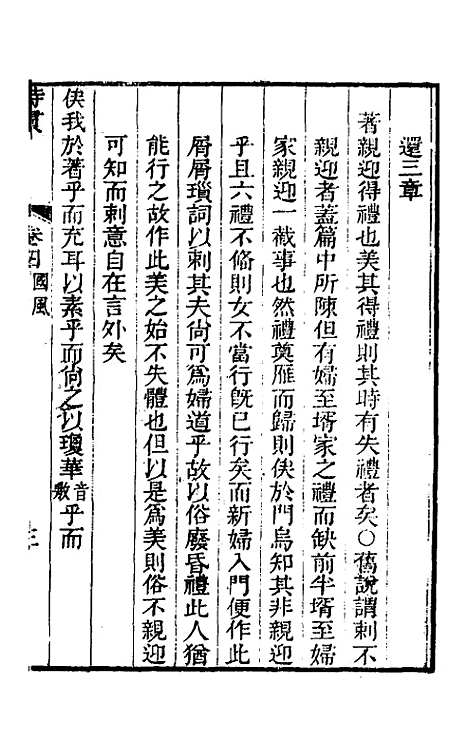 還三章
著親迎得禮也美其得禮則其時有失禮者矣○舊說謂刺不
親迎者蓋篇中所陳但有婦至壻家之禮而缺前半壻至婦
家親迎一截事也然禮奠雁而歸則俟於門烏知其非親迎
乎且六禮不備則女不當行旣已行矣而新婦入門便作此
屑屑瑣詞以刺其夫尙可爲婦道乎故以俗廢昏禮此人猶
能行之故作此美之始不失體也但以是爲美則俗不親迎
可知而刺意自在言外矣
俟我於著乎而充耳以素乎而尙之以瓊華音敷乎而
詩貫 卷四國風 三